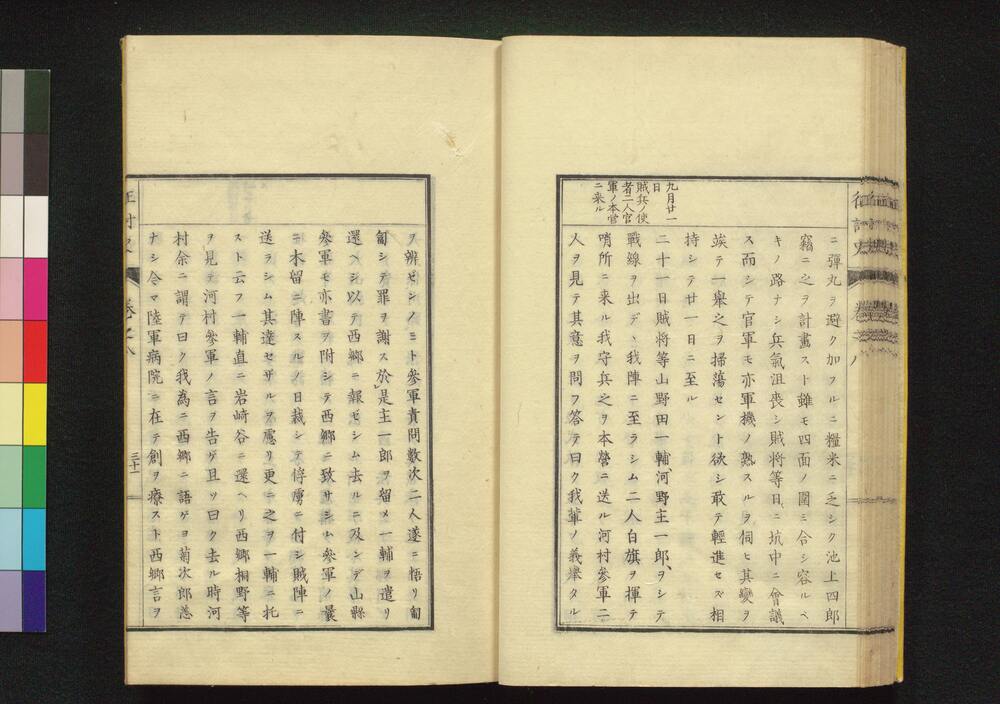 ニ彈丸ヲ避ク加フルニ糧米ニ乏シク池上四郎
竊ニ之ヲ計畫スト雖モ四面ノ圍ミ合シ容ルベ
キノ路ナシ兵氣沮喪シ賊将等日ニ坑中ニ會議
ス而シテ官軍モ亦軍機ノ熟スルヲ伺ヒ其變ヲ
竢テ一舉之ヲ掃蕩セント欲シ敢テ輕進セズ相
持シテ廿一日ニ至ル
九月廿一
日
賊兵ノ使
者二人官
軍ノ本営
ニ来ル
二十一日賊将等山野田一輔、河野主一郎、ヲシテ
戰線ヲ出デヽ我陣ニ至ラシム二人白旗ヲ揮テ
哨所ニ来ル我守兵之ヲ本營ニ送ル河村參軍二
人ヲ見テ其意ヲ問フ答テ曰ク我輩ノ義擧タル
ヲ辨ゼシノミト參軍責問數次二人遂ニ悟リ匐
匐シテ罪ヲ謝ス於是主一郎ヲ留メ一輔ヲ遣リ
還ヘシ以テ西郷ニ報ゼシム去ルニ及ンデ山縣
參軍モ亦書ヲ附シテ西郷ニ致サシム參軍ノ曩
ニ木留ニ陣スルノ日裁シテ俘虜ニ付シ賊陣ニ
送ラシム其達セザルヲ慮リ更ニ之ヲ一輔ニ托
スト云フ一輔直ニ岩崎谷ニ還ヘリ西郷桐野等
ヲ見テ河村參軍ノ言ヲ告ゲ且ツ曰ク去ル時河
村余ニ謂テ曰ク我為ニ西郷ニ語ゲヨ菊次郎恙
ナシ今マ陸軍病院ニ在テ創ヲ療スト西郷言ヲ
三十一